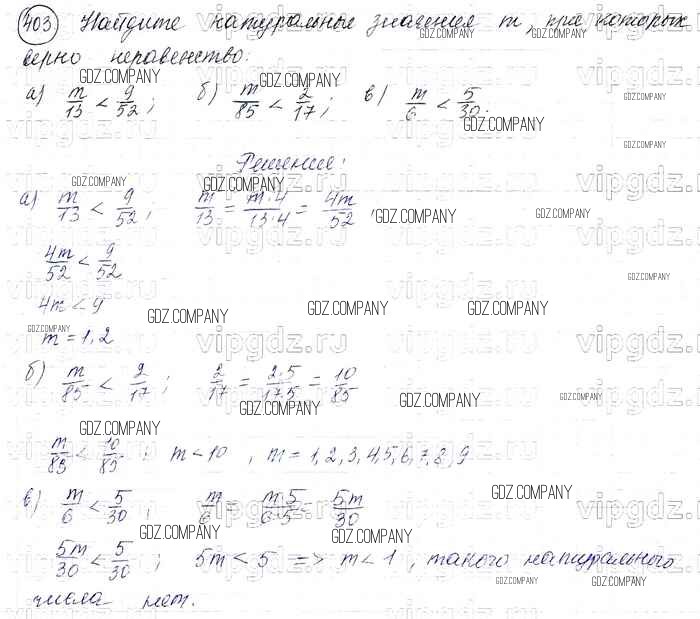 403 Найдите натуральные значения m, при которых
верно неравенство:
а) m/13 < 9/52; б) m/85 < 2/17; в) m/6 < 5/30.
Решение:
а) m/13 < 9/52; m/13 = m·4/13·4 = 4m/52,
4m/52 < 9/52
4m < 9
m = 1,2
б) m/85 < 2/17; 2/17 = 2·5/17·5 = 10/85
m/85 < 10/85; m < 10, m = 1,2,3,4,5,6,7,8,9
в) m/6 < 5/30; m/6 = m·5/6·5 = 5m/30
5m/30 < 5/30; 5m < 5 => m < 1, такого натурального
числа нет.
GDZ.COMPANY
vipgdz.ru